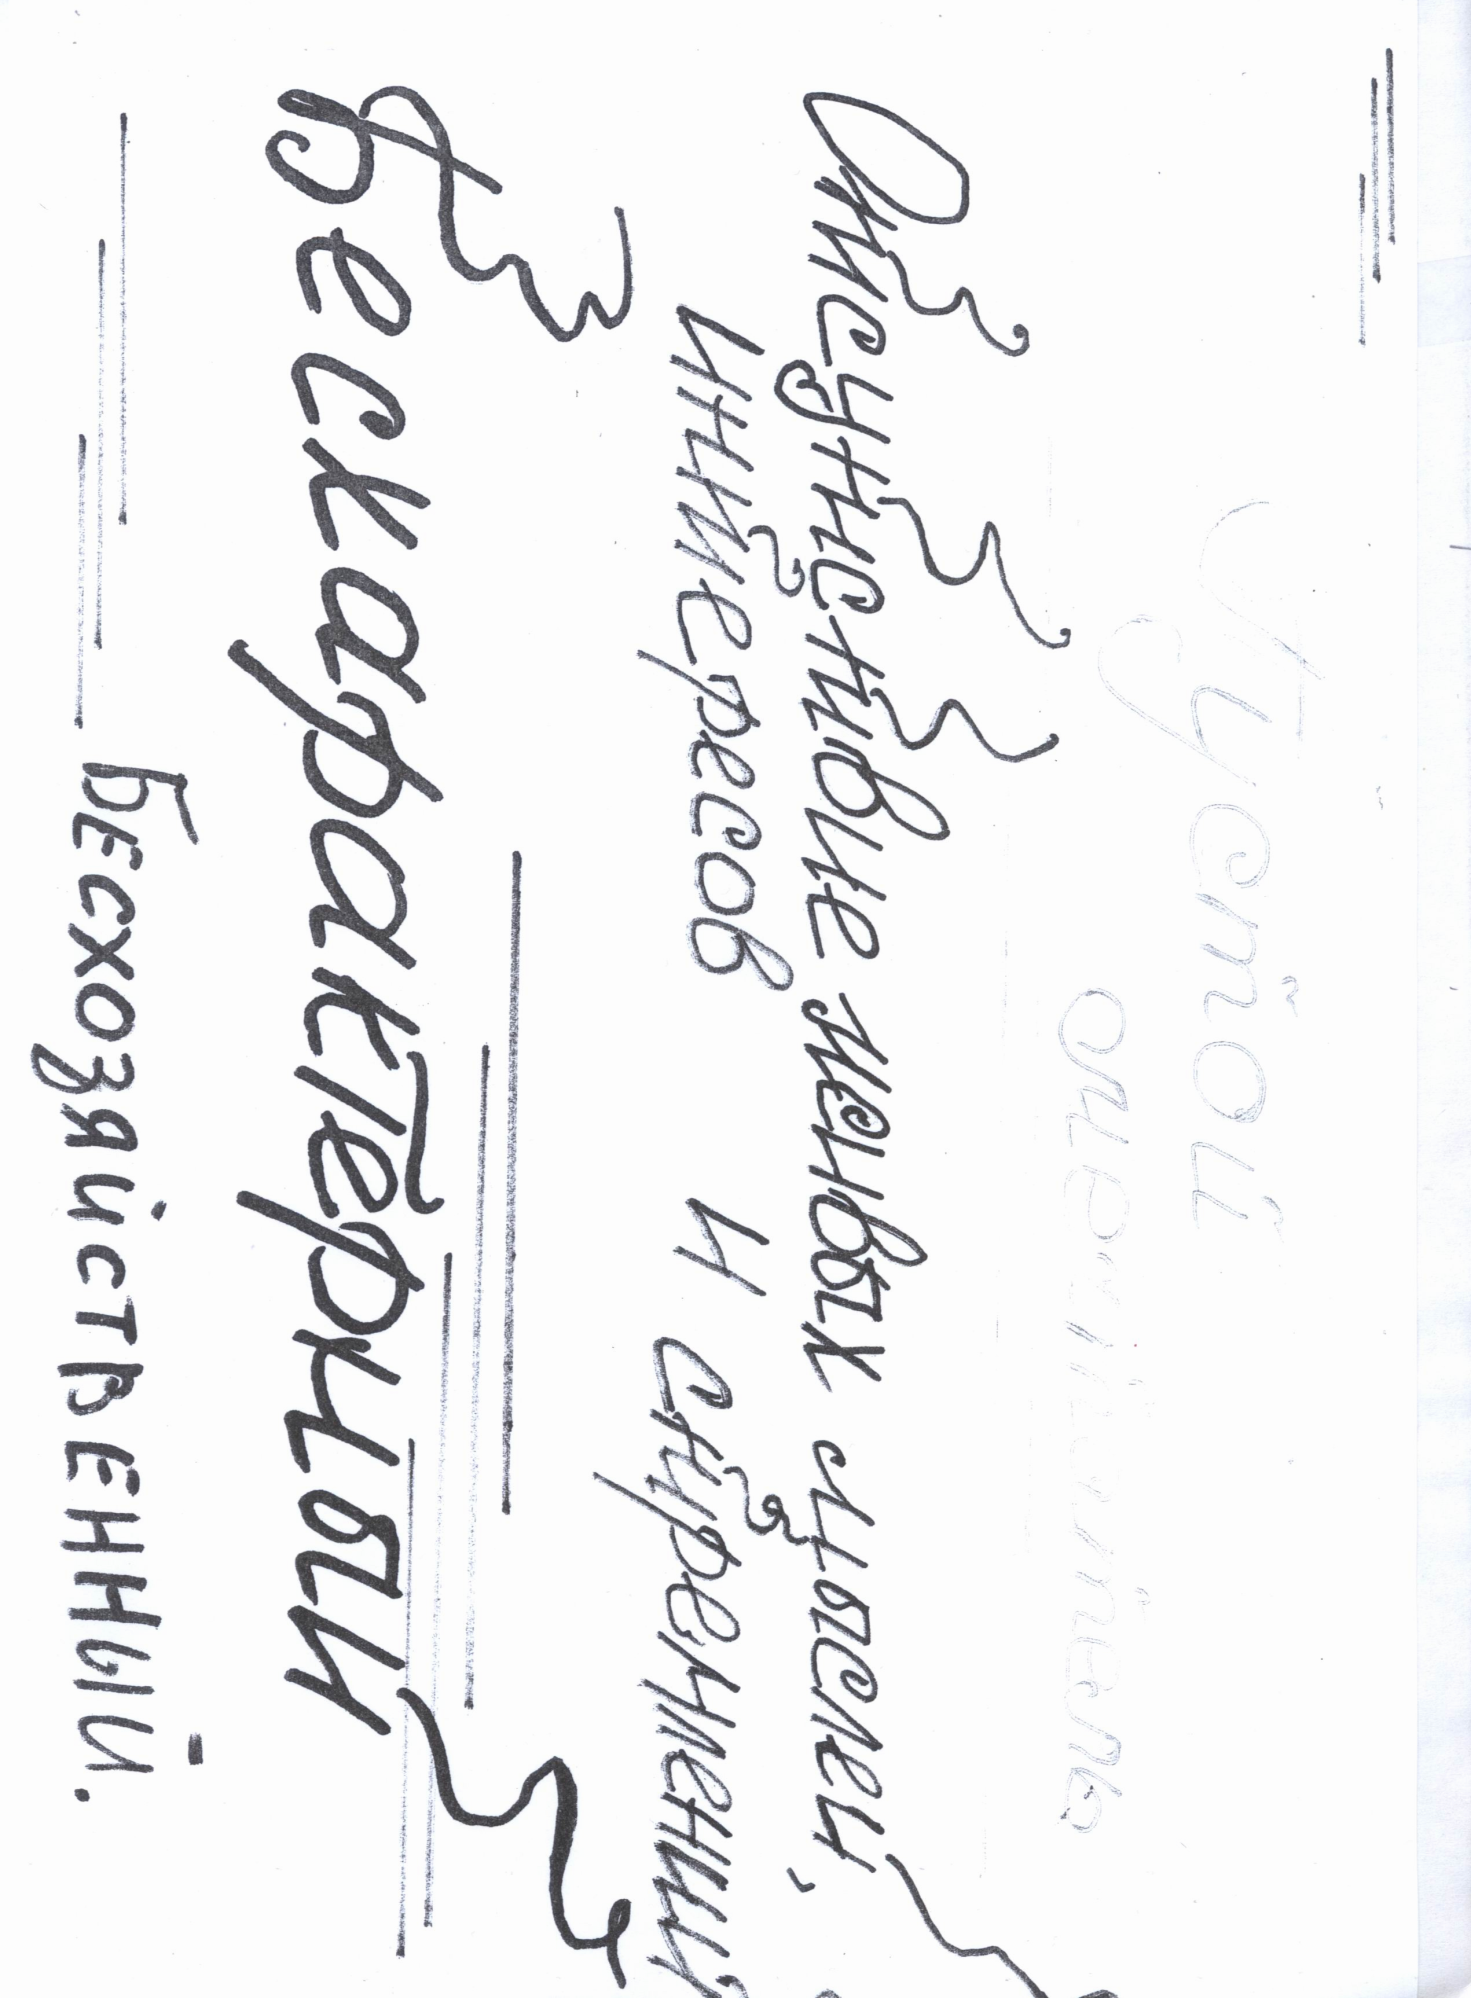 Пустой
Отсутствие жизненных целей,
интересов и стремлений
Бескарактерный
БЕСХОЗЯЙСТВЕННЫЙ.